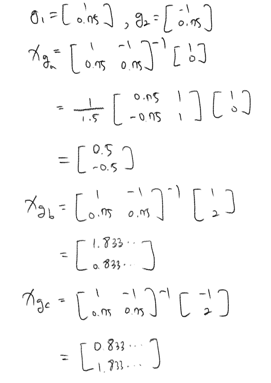 g₁ = [1 0.75], g₂ = [-1 0.75]
x_gₐ = [1 -1 0.75 0.75]⁻¹ [1 0]
= 1/1.5 [0.75 1 -0.75 1] [1 0]
= [0.5 -0.5]
x_g_b = [1 -1 0.75 0.75]⁻¹ [1 2]
= [1.833... 0.833...]
x_g_c = [1 -1 0.75 0.75]⁻¹ [-1 2]
= [0.833... 1.833...]